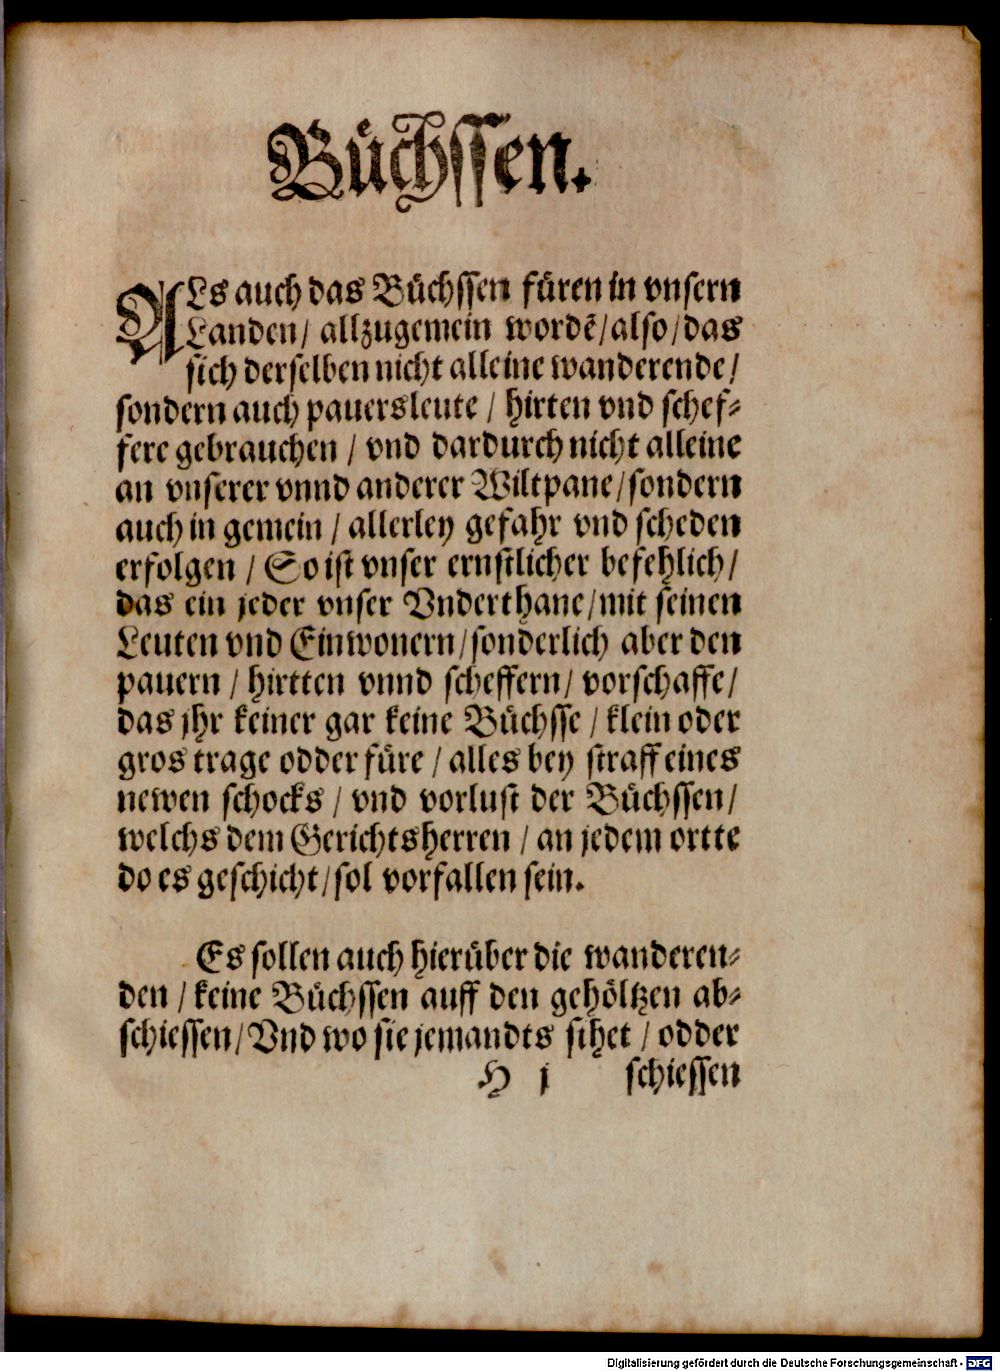 Büchssen.
ALs auch das Büchssen füren in vnsern
Landen/ allzugemein wordẽ/also/das
sich derselben nicht alleine wanderende/
sondern auch pauersleute / hirten vnd schef-
fere gebrauchen / vnd dardurch nicht alleine
an vnserer vnnd anderer Wiltpane/sondern
auch in gemein / allerley gefahr vnd scheden
erfolgen / So ist vnser ernstlicher befehlich/
das ein jeder vnser Vnderthane/mit seinen
Leuten vnd Einwonern/sonderlich aber den
pauern / hirtten vnnd scheffern/ vorschaffe/
das jhr keiner gar keine Büchsse / klein oder
gros trage odder füre / alles bey straff eines
newen schocks / vnd vorlust der Büchssen/
welchs dem Gerichtsherren / an jedem ortte
do es geschicht/sol vorfallen sein.
Es sollen auch hierüber die wanderen-
den / keine Büchssen auff den gehöltzen ab-
schiessen/Vnd wo sie jemandts sihet / odder
H j schiessen
Digitalisierung gefördert durch die Deutsche Forschungsgemeinschaft - DFG